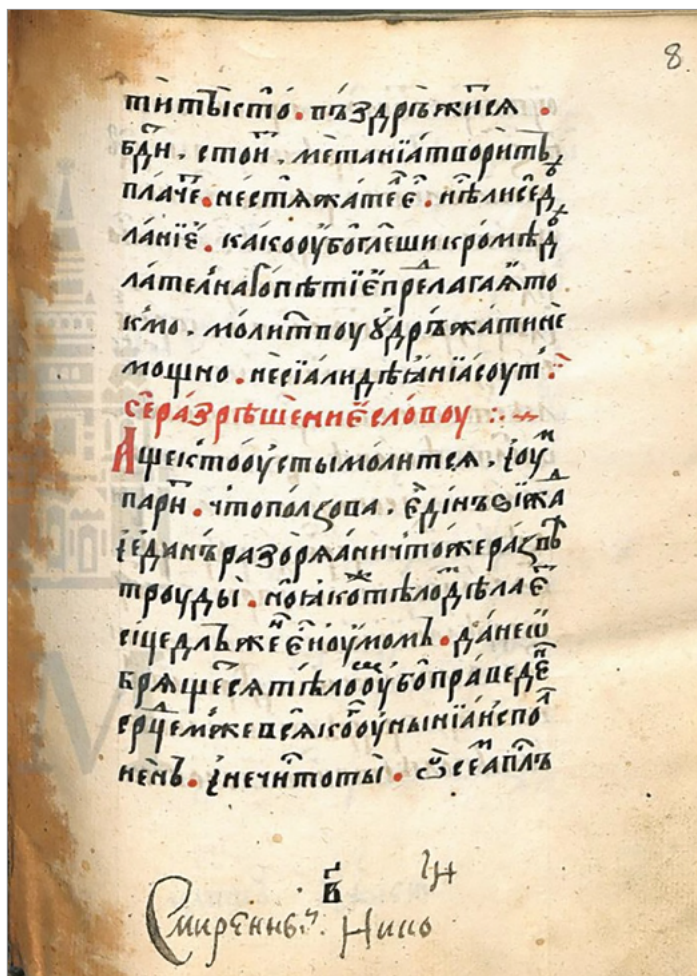 8
ти ты сто̑ . въздрьжисѧ .
бди . стои . метанїа творить
плаче . не стѧжателе̑ . нѣ ли се д҇ѣ
ланїѐ . како оубо глеши кромѣ дѣ
лателнаго пѣтїе прелагаа̑ то
кмо . молитвоу ꙋдрьжати не
мощно . не сїа ли дѣанїа соуть
се разрѣшенїе словоу
Аще кто оусты молитсѧ , і оумⷨ
парит . что полꙃова . единъ зиждⷶ
і единъ разорѧа ничтоже развѣ
троуды . но ꙗкоⷤ тѣлоⷨ дѣлае
сице длъжеⷩ е и оумомъ . да не ѡ
брѧщетсѧ тѣлоⷨ оубо праведеⷩ
ерⷣцем же всѧкоⷢ оунынїа исполⷧ
ненъ . і нечистоты . ꙋ̑ сеⷨ аплъ
в҃
Смиренный Нико